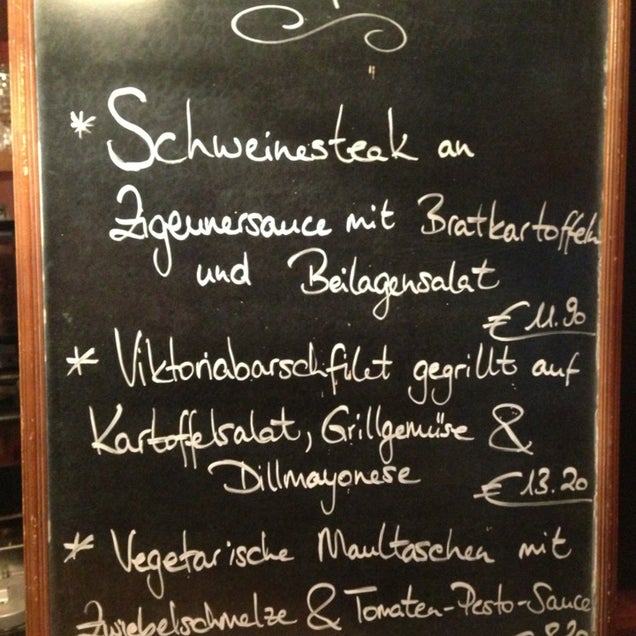 * Schweinesteak an
Zigeunersauce mit Bratkartoffeln
und Beilagensalat
€ 11.90
* Viktoriabarschfilet gegrillt auf
Kartoffelsalat, Grillgemüse &
Dillmayonese
€ 13.20
* Vegetarische Maultaschen mit
Zwiebelschmelze & Tomaten-Pesto-Sauce
8.20